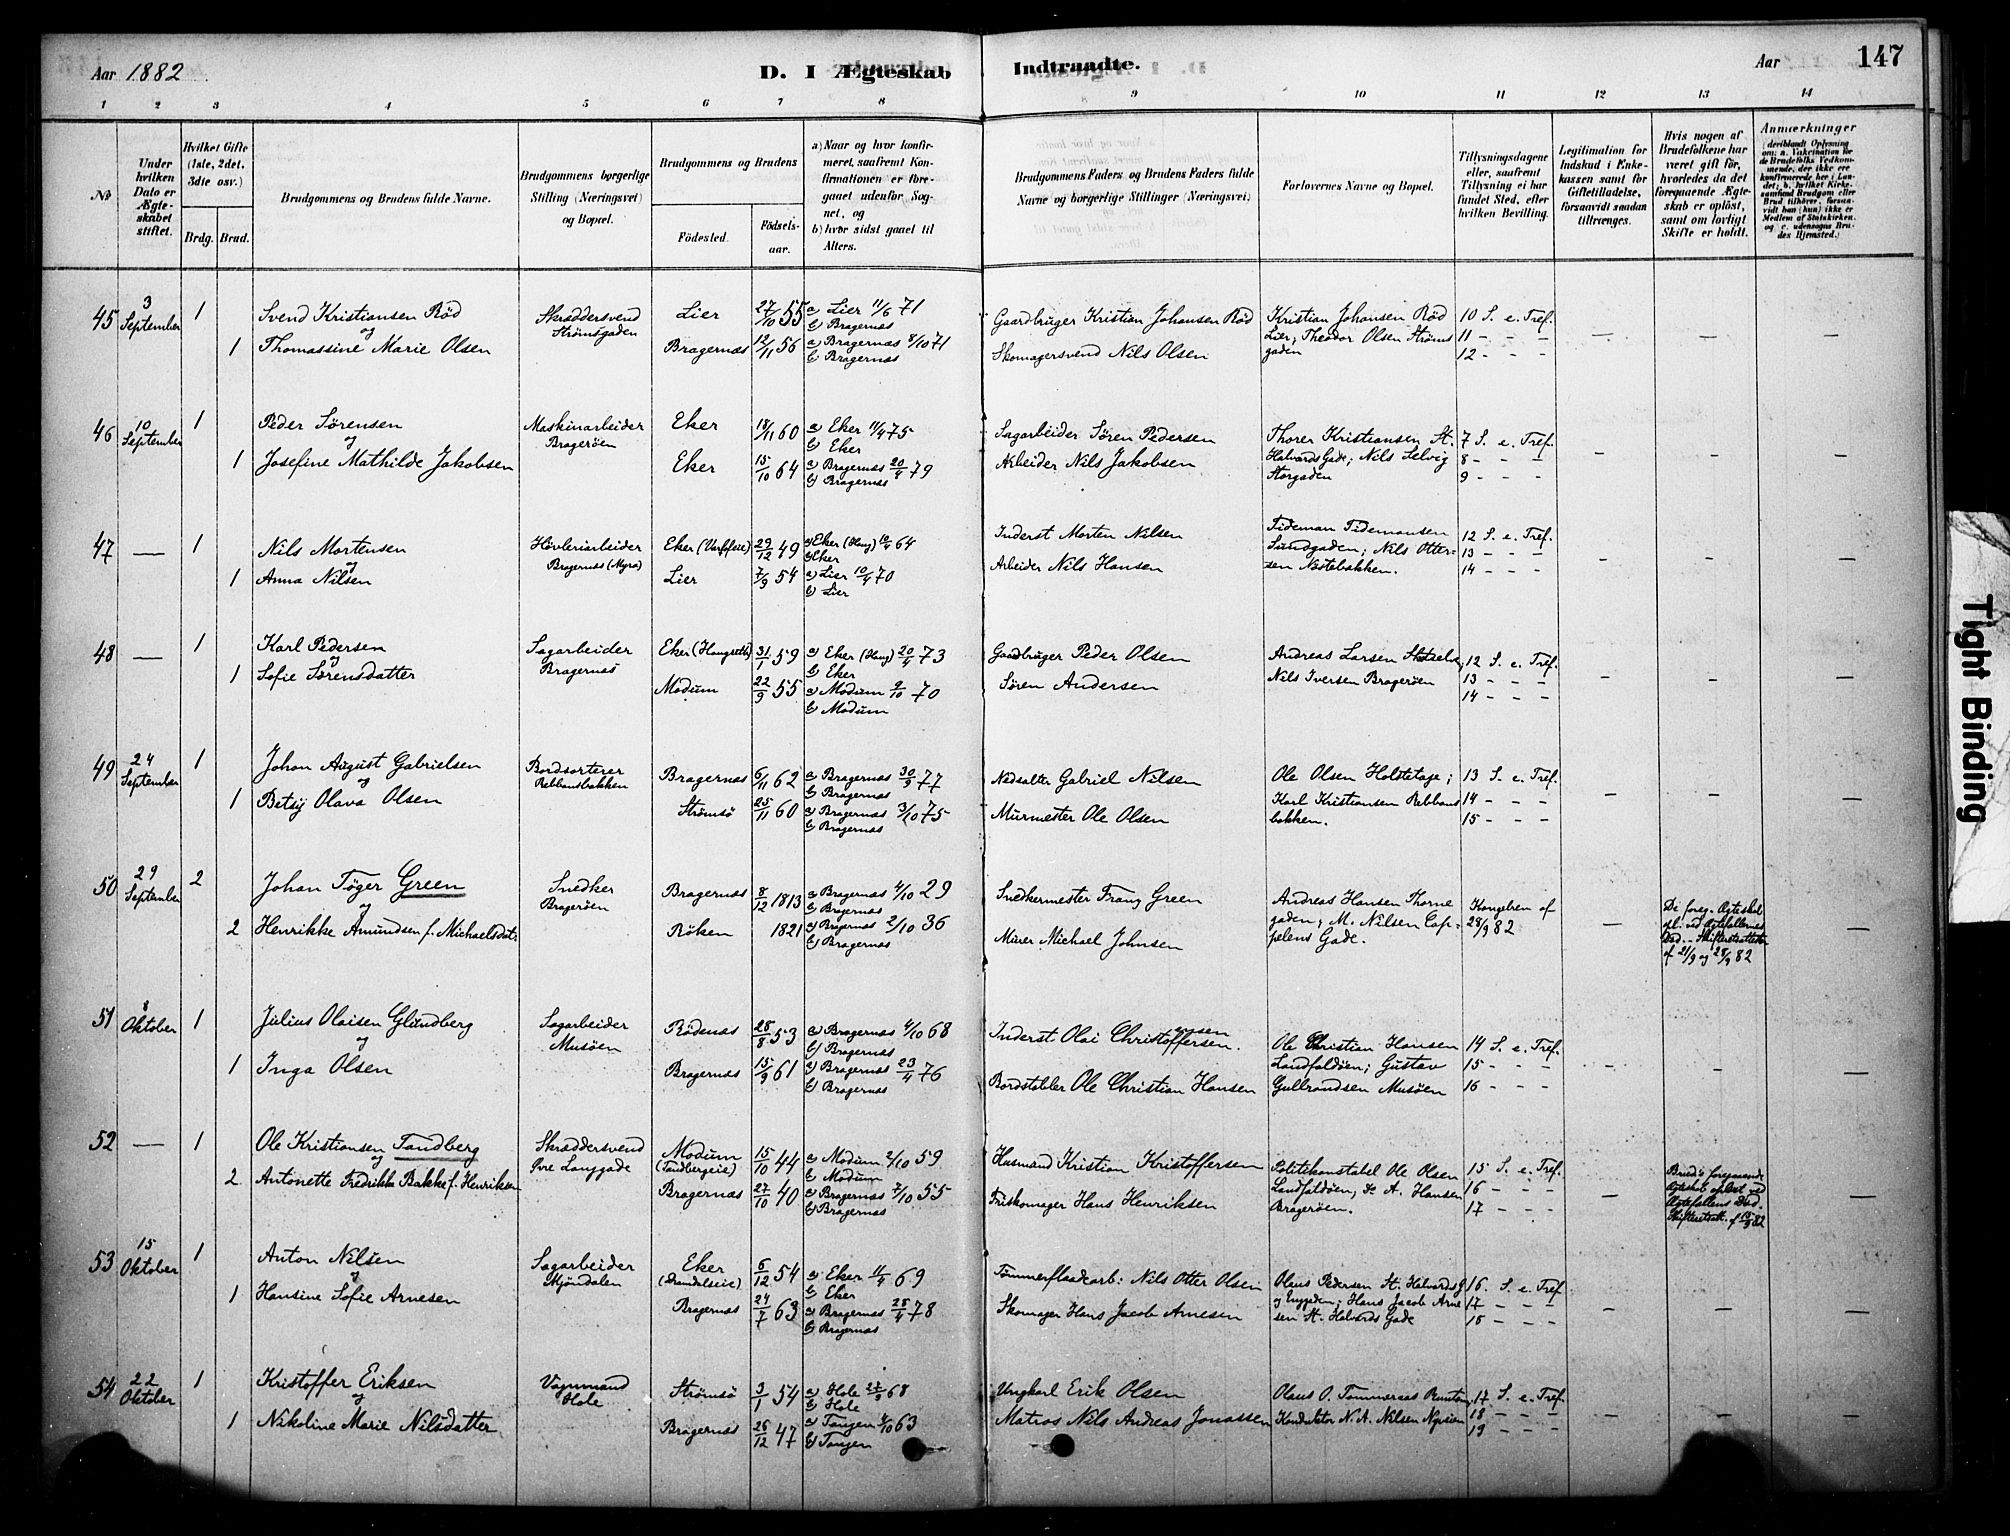 Aar 1882
D. I Ægteskab Indtraadte.
Aar
147
1 2 3 4 5 6 7 8 9 10 11 12 13 14
No
Under hvilken Dato er Ægteskabet stiftet.
Hvilket Gifte (1ste, 2det, 3die osv.)
Brdg. Brud.
Brudgommens og Brudens fulde Navne.
Brudgommens borgerlige Stilling (Næringsvei) og Bopæl.
Brudgommens og Brudens
Fødested. Fødselsaar.
a) Naar og hvor konfirmeret, saafremt Konfirmationen er foregaaet udenfor Sognet, og
b) hvor sidst gaaet til Alters.
Brudgommens Faders og Brudens Faders fulde Navne og borgerlige Stillinger (Næringsvei)
Forlovernes Navne og Bopæl.
Tillysningsdagene eller, saafremt Tillysning ei har fundet Sted, efter hvilken Bevilling.
Legitimation for Indskud i Enkekassen samt for Giftetilladelse, forsaavidt saadan tiltrænges.
Hvis nogen af Brudefolkene har været gift før, hvorledes da det foregaaende Ægteskab er opløst, samt om lovligt Skifte er holdt.
Anmærkninger (deriblandt Oplysning om: a. Vakcination for de Brudefolks Vedkommende, der ikke ere konfirmerede her i Landet; b. hvilket Kirkesamfund Brudgom eller Brud tilhører, forsaavidt han (hun) ikke er Medlem af Statskirken, og c. udensogns Brudes Hjemsted.)
45 3 September 1 Svend Kristiansen Rød Skræddersvend Strømsgaden Lier 27/10 55 a) Lier 11/6 71 b) Bragernæs Gaardbruger Kristian Johansen Rød Kristian Johansen Rød 10 S. e. Tref.
og
1 Thomassine Marie Olsen Bragernæs 12/11 56 a) Bragernæs 8/10 71 b) Bragernæs Skomagersvend Nils Olsen Lier; Theodor Olsen Strømsgaden 11 - - - 12 - - -
46 10 September 1 Peder Sørensen Maskinarbeider Bragerøen Eker 18/11 60 a) Eker 11/4 75 b) Eker Sagarbeider Søren Pedersen Thorer Kristiansen St. 7 S. e. Tref.
og
1 Josefine Mathilde Jakobsen Eker 15/10 64 a) Bragernæs 20/4 79 b) Bragernæs Arbeider Nils Jakobsen Halvards Gade; Nils Selvig Storgaden 8 - - - 9 - - -
47 — 1 Nils Mortensen Høvleriarbeider Bragernæs (Myra) Eker 29/12 49 a) Eker (Haug) 64 b) Eker Inderst Morten Nilsen Tideman Tidemansen 12 S. e. Tref.
og
1 Anna Nilsen Lier 7/9 54 a) Lier 10/4 70 b) Lier Arbeider Nils Hansen Sundgaden; Nils Ottersen Næstebakken. 13 - - - 14 - - -
48 — 1 Karl Pedersen Sagarbeider Bragernæs Eker 31/1 59 a) Eker (Haug) 20/4 73 b) Eker Gaardbruger Peder Olsen Andreas Larsen 12 S. e. Tref.
og
1 Sofie Sørensdatter Modum 22/9 55 a) Modum 9/10 70 b) Modum Søren Andersen Nils Iversen Bragerøen 13 - - - 14 - - -
49 24 September 1 Johan August Gabrielsen Bordsorterer Rebbansbakken Bragernæs 6/11 62 a) Bragernæs 30/9 77 b) Bragernæs Gabriel Nilsen Ole Olsen Holdtetage; 13 S. e. Tref.
og
1 Betsy Olava Olsen Strømsø 25/11 60 a) Bragernæs 3/10 75 b) Bragernæs Murmester Ole Olsen Karl Kristiansen Rebbansbakken. 14 - - - 15 - - -
50 29 September 2 Johan Tøger Green Snedker Bragerøen Bragernæs 8/12 1813 a) Bragernæs 4/10 29 b) Bragernæs Snedkermester Franz Green Andreas Hansen Thornegaden; M. Nilsen Cappelens Gade. Kongebrev af 28/9 82
og
2 Henrikke Amundsen f. Michaelsdat: Røken 1821 a) Bragernæs 2/10 36 b) Bragernæs Murer Michael Johnsen De foreg. Ægteskab opl. ved Ægtefællernes Død. - Skifteretsattester af 21/9 og 28/9 82
51 8 Oktober 1 Julius Olaisen Glundberg Sagarbeider Musøen Rødenæs 28/8 53 a) Bragernæs 4/10 68 b) Bragernæs Inderst Olai Christoffersen. Ole Christian Hansen 14 S. e. Tref.
og
1 Inga Olsen Bragernæs 15/9 61 a) Bragernæs 23/4 76 b) Bragernæs Bordstabler Ole Christian Hansen Landfaldøen; Gustav Gulbrandsen Musøen 15 - - - 16 - - -
52 — 1 Ole Kristiansen Tandberg Skræddersvend Øvre Langgade Modum (Tandbergeie) 15/10 44 a) Modum 2/10 59 b) Modum Husmand Kristian Kristoffersen Politikonstabel Ole Olsen 15 S. e. Tref.
og
2 Antonette Fredrikke Bakke f. Henriksen Bragernæs 27/10 40 a) Bragernæs 7/10 55 b) Bragernæs Friskomager Hans Henriksen Landfaldøen; A. Hansen Bragerøen. 16 - - - 17 - - - Brudes foregaaende Ægteskab opløst ved Ægtefællens Død. Skifteretsatt. af 15/9 82
53 15 Oktober 1 Anton Nilsen Sagarbeider Mjøndalen Eker 6/12 54 a) Eker 11/4 69 b) Eker Tømmerflaadearb: Nils Otter Olsen Olaus Pedersen St. Halvards G. 16. S. e. Tref.
og
1 Hansine Sofie Arnesen Bragernæs 24/7 63 a) Bragernæs 28/4 78 b) Bragernæs Skomager Hans Jacob Arnesen og Enggaden; Hans Jacob Arnesen St. Halvards Gade 17 - - - 15 - - -
54 22 Oktober 1 Kristoffer Eriksen Vognmand Hole Strømsø 3/1 54 a) Hole 27/9 68 b) Hole Ungkarl Erik Olsen Olaus O. 17. S. e. Tref.
og
1 Nikoline Marie Nilsdatter Bragernæs 26/12 47 a) Tangen 4/10 63 b) Tangen Matros Nils Andreas Jonassen Konduktør N. A. Nilsen Nyveien 18 - - - 19 - - -
Tight Binding